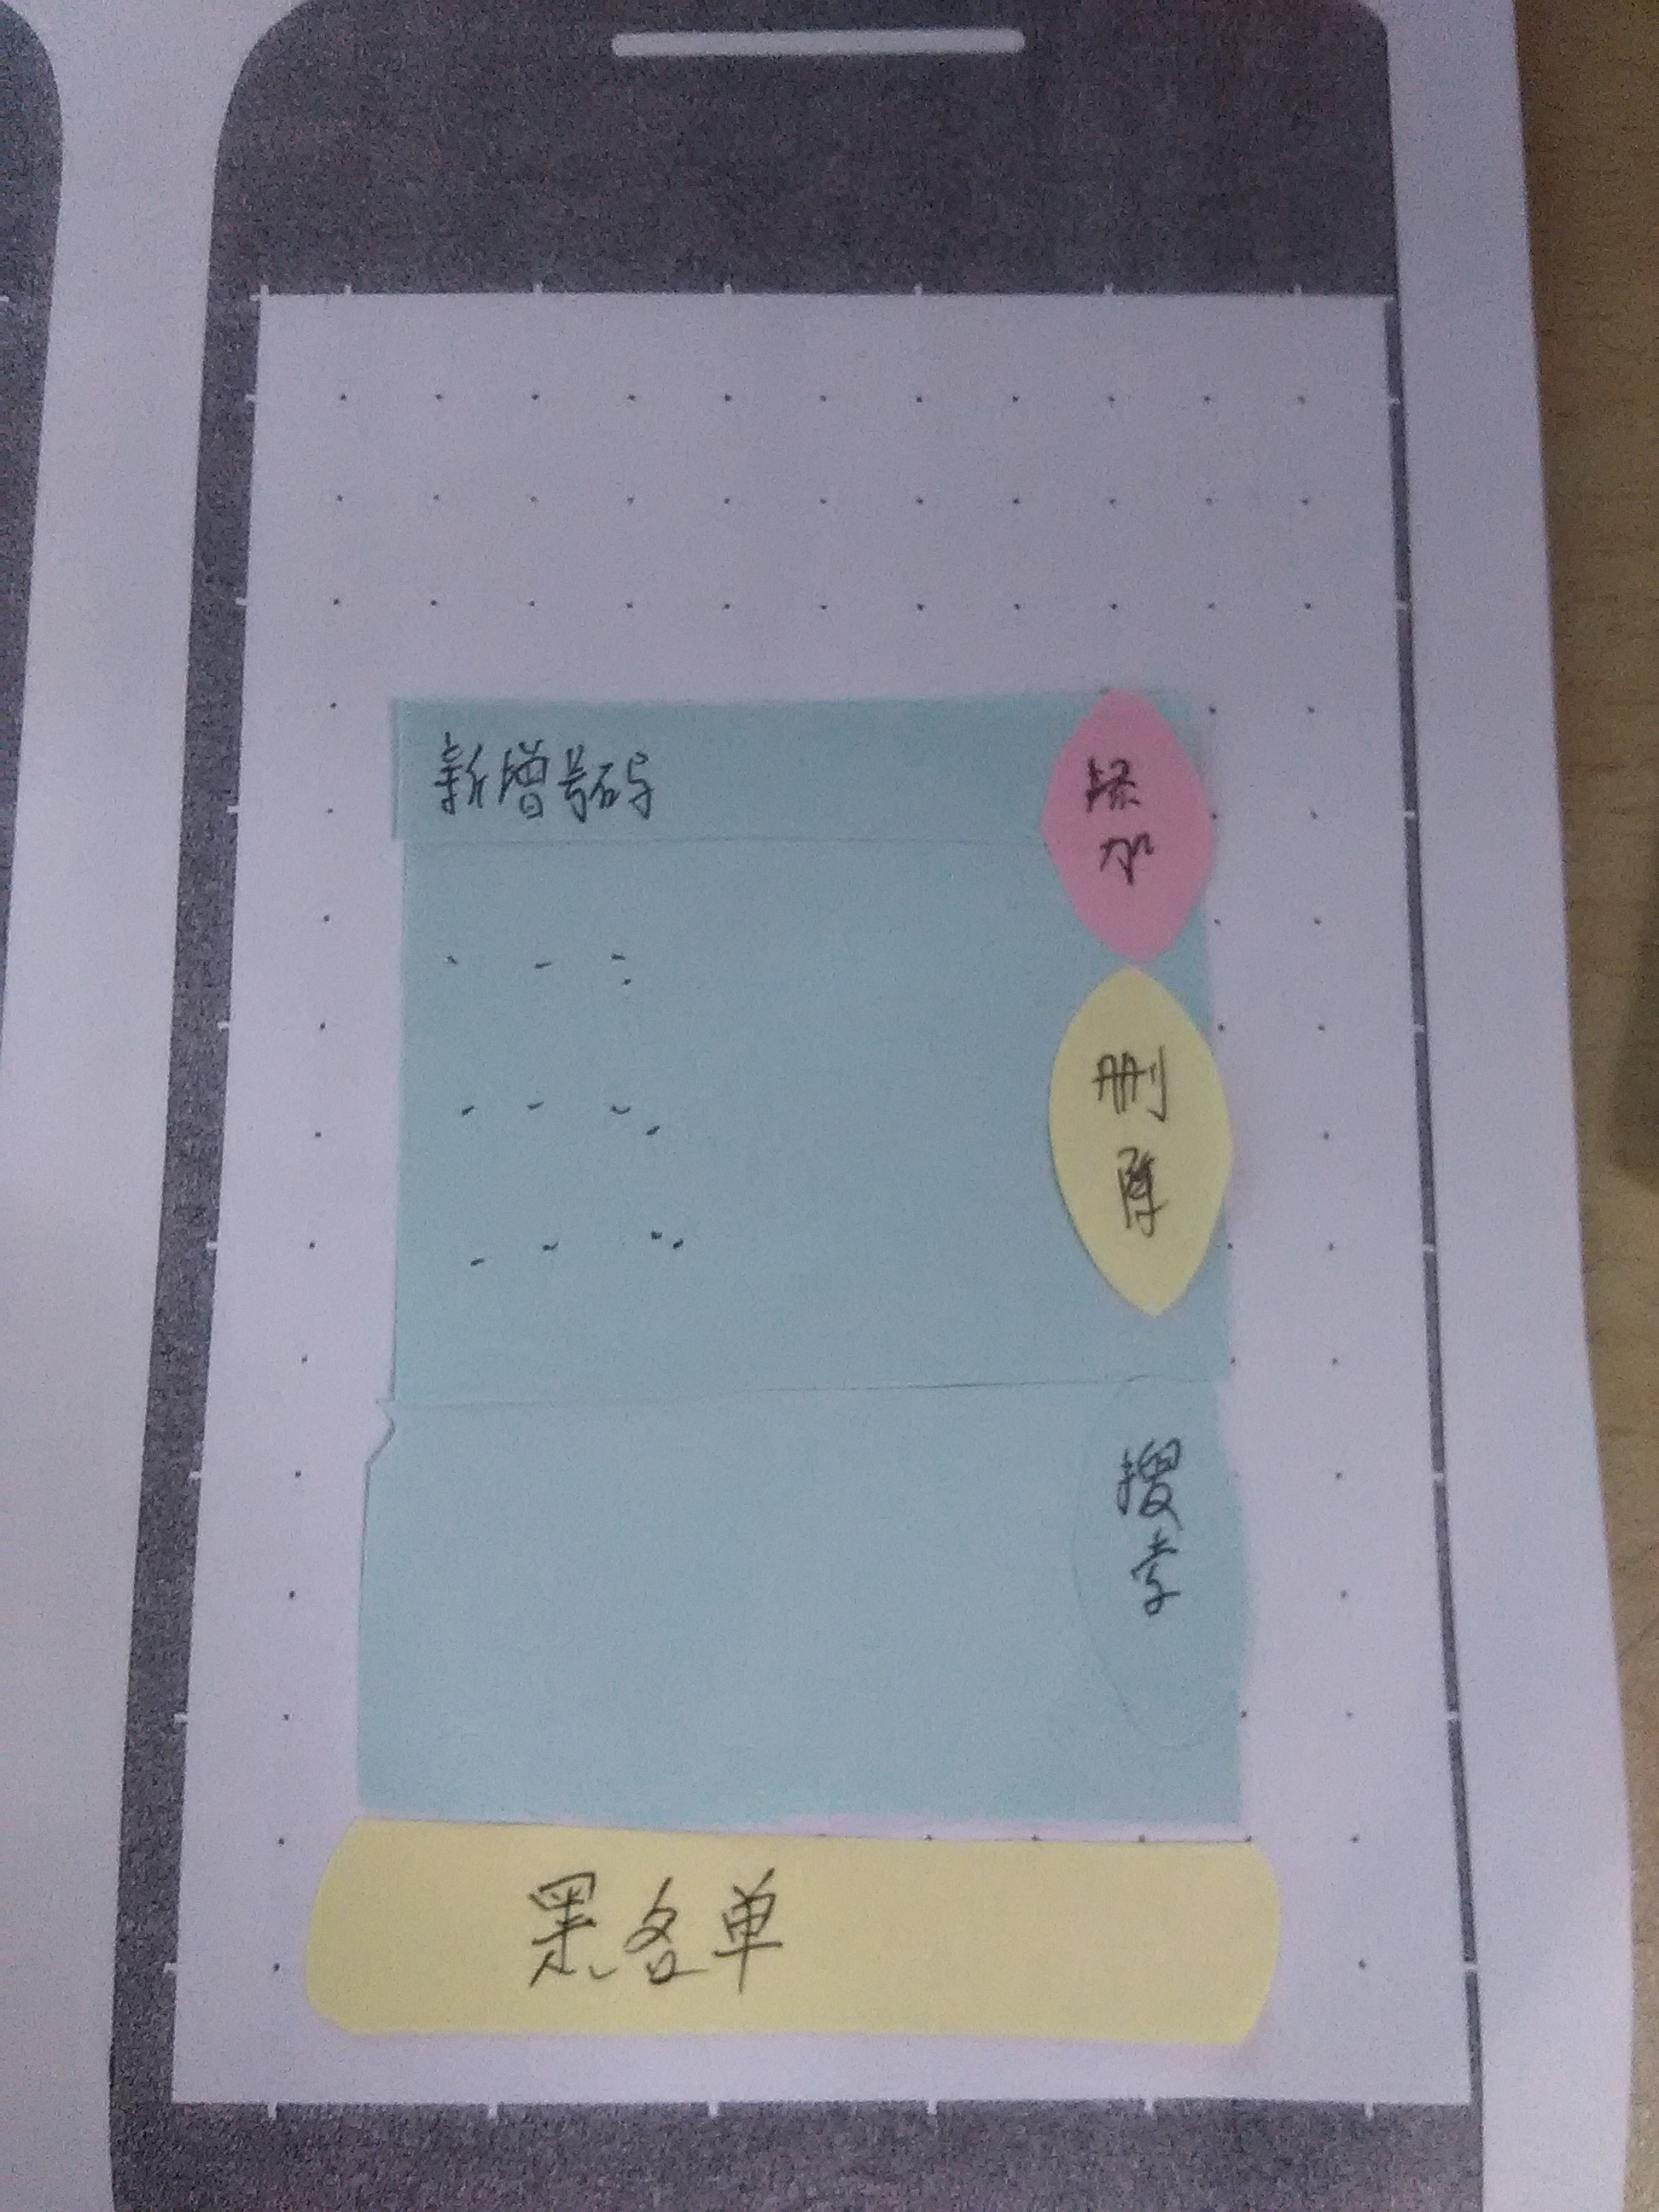 新增号码
添加
删除
搜索
黑名单